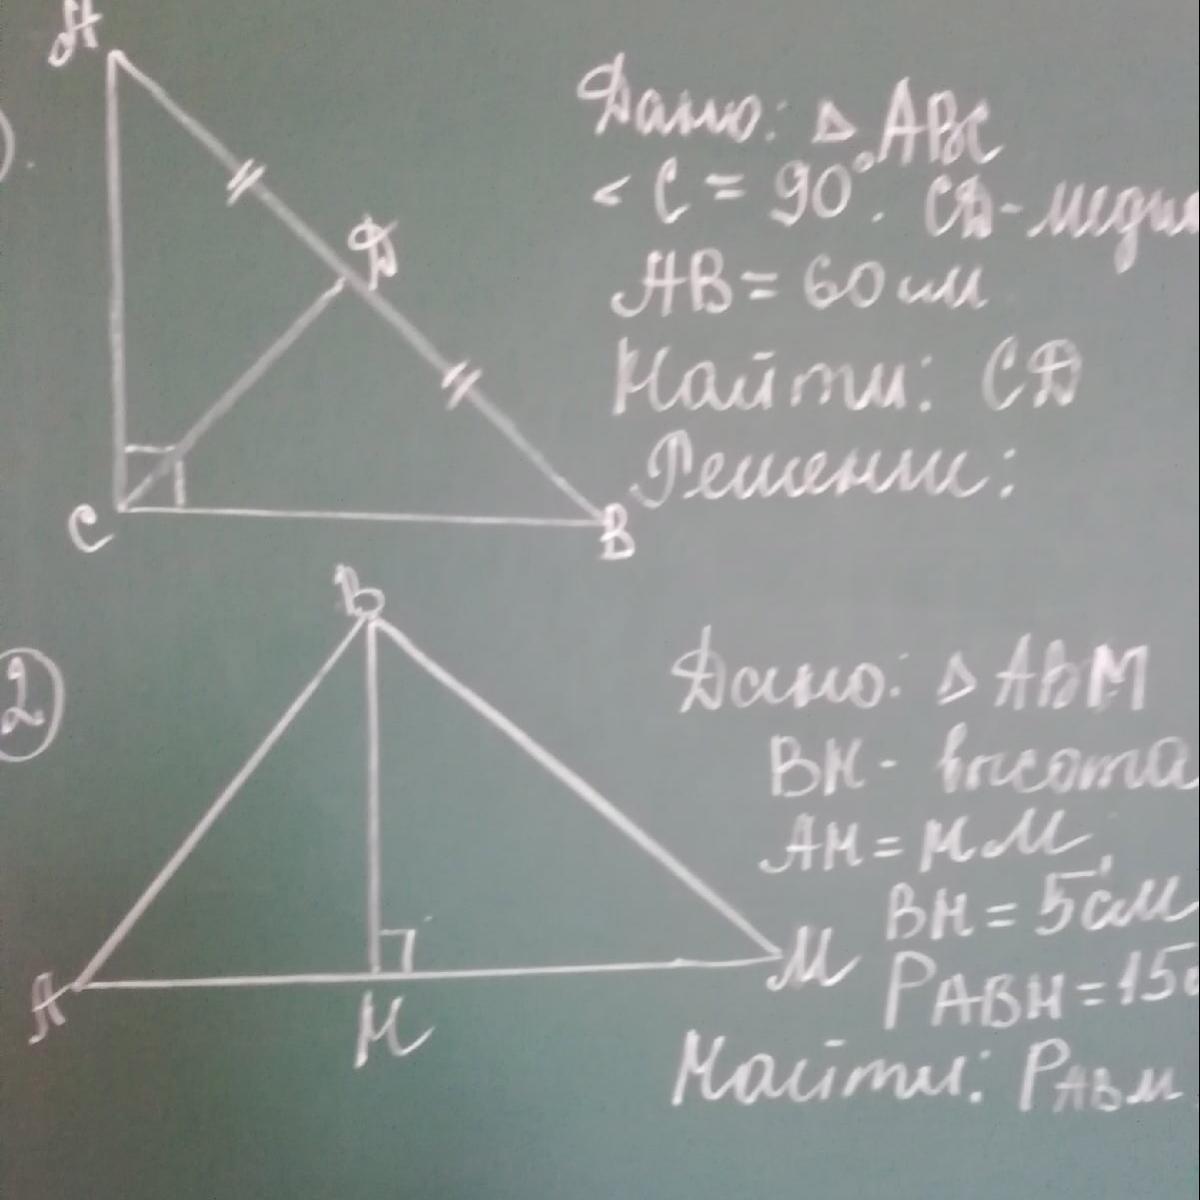 А
Дано: △ ABC
< C = 90°. CD-медиа
D
AB = 60 см
Найти: CD
Решение:
C
B
B
2
Дано: △ ABM
BH - высота
AH = HM,
BH = 5см
M
PABH = 15с
A
H
Найти: PABM